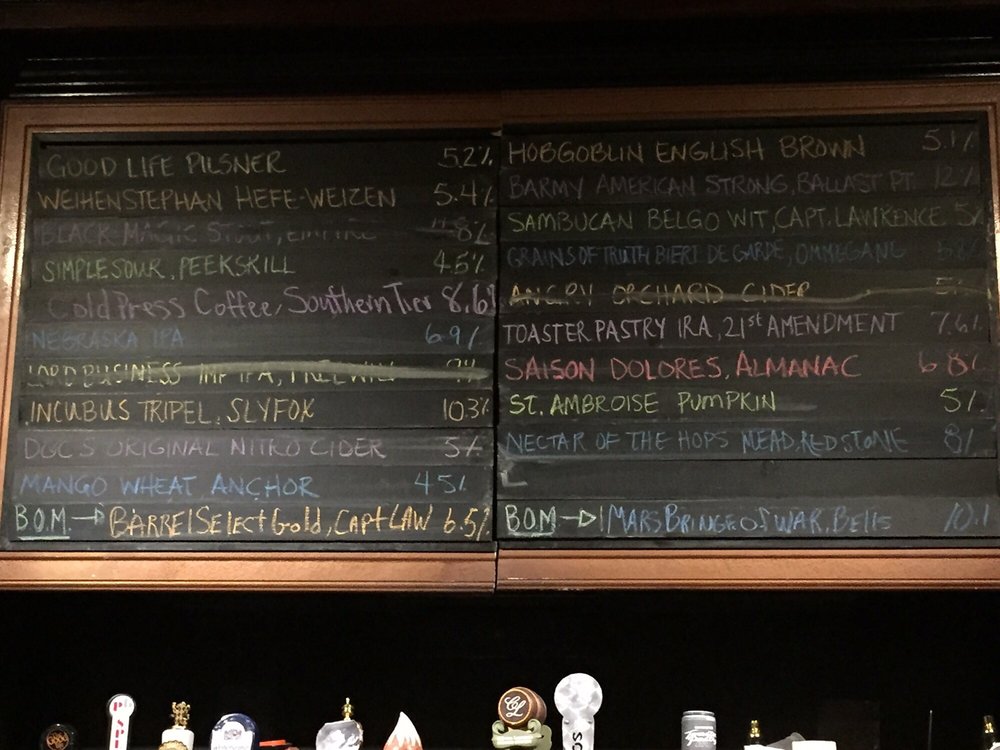 GOOD LIFE PILSNER 5.2%
WEIHENSTEPHAN HEFE-WEIZEN 5.4%
BLACK MAGIC STOUT, EMPIRE 8%
SIMPLE SOUR, PEEKSKILL 4.5%
Cold Press Coffee, Southern Tier 8.6%
NEBRASKA IPA 6.9%
LORD BUSINESS IMP IPA, FREEWILL
INCUBUS TRIPEL, SLYFOX 10.3%
DOC'S ORIGINAL NITRO CIDER 5%
MANGO WHEAT ANCHOR 4.5%
B.O.M. → BARREL Select Gold, Capt LAW 6.5%
HOBGOBLIN ENGLISH BROWN 5.1%
BARMY AMERICAN STRONG, BALLAST PT. 12%
SAMBUCAN BELGO WIT, CAPT. LAWRENCE 5%
GRAINS OF TRUTH BIERE DE GARDE, OMMEGANG
ANGRY ORCHARD CIDER
TOASTER PASTRY IRA, 21st AMENDMENT 7.6%
SAISON DOLORES, ALMANAC 6.8%
ST. AMBROISE PUMPKIN 5%
NECTAR OF THE HOPS MEAD, REDSTONE 8%
B.O.M → MARS BRINGE OF WAR, Bells 10.1
CL